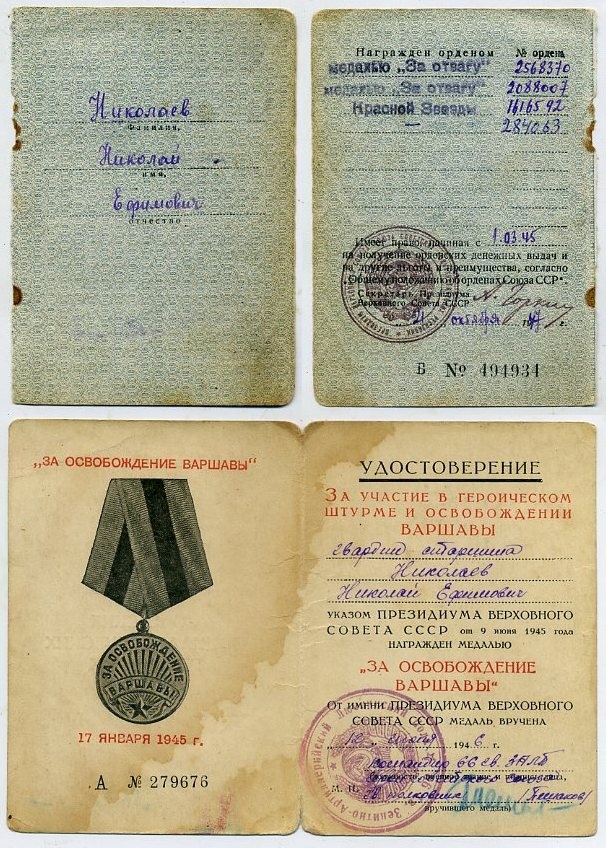 Николаев
фамилия,
Николай
имя,
Ефимович
отчество
Награжден орденом № ордена
медалью „За отвагу" 2568370
медалью „За отвагу" 2088007
Красной Звезды 1616592
— 284063
Имеет право, начиная с 1.03.45
на получение орденских денежных выдач и
на другие льготы и преимущества, согласно
„Общему положению об орденах Союза ССР".
Секретарь Президиума
Верховного Совета СССР
21 октября 1947 г.
Б № 494934
„ЗА ОСВОБОЖДЕНИЕ ВАРШАВЫ"
ЗА ОСВОБОЖДЕНИЕ
ВАРШАВЫ
17 ЯНВАРЯ 1945 г.
А № 279676
УДОСТОВЕРЕНИЕ
ЗА УЧАСТИЕ В ГЕРОИЧЕСКОМ
ШТУРМЕ И ОСВОБОЖДЕНИИ
ВАРШАВЫ
гвардии старшина
Николаев
Николай Ефимович
УКАЗОМ ПРЕЗИДИУМА ВЕРХОВНОГО
СОВЕТА СССР от 9 июня 1945 года
НАГРАЖДЕН МЕДАЛЬЮ
„ЗА ОСВОБОЖДЕНИЕ
ВАРШАВЫ"
ОТ ИМЕНИ ПРЕЗИДИУМА ВЕРХОВНОГО
СОВЕТА СССР МЕДАЛЬ ВРУЧЕНА
1946 г.
командир 66 гв. ЗАП
М. П.
вручившего медаль)